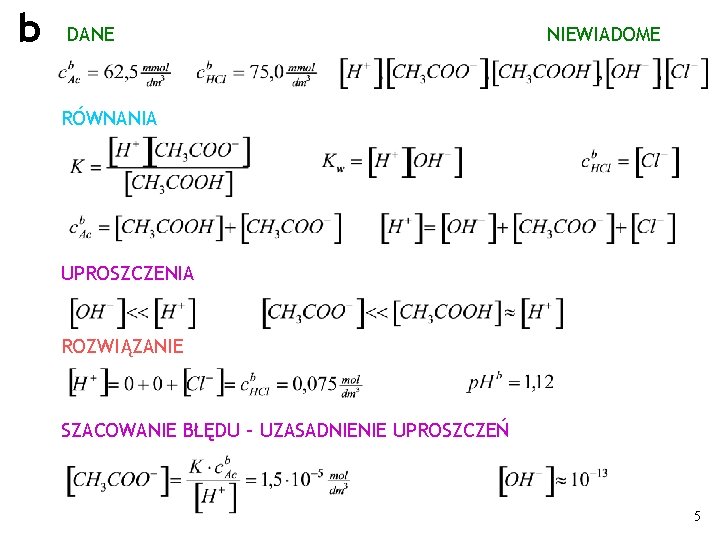 b DANE NIEWIADOME
c^b_Ac = 62,5 mmol/dm³ c^b_HCl = 75,0 mmol/dm³ [H⁺], [CH₃COO⁻], [CH₃COOH], [OH⁻], [Cl⁻]
RÓWNANIA
K = [H⁺][CH₃COO⁻] / [CH₃COOH] K_w = [H⁺][OH⁻] c^b_HCl = [Cl⁻]
c^b_Ac = [CH₃COOH] + [CH₃COO⁻] [H⁺] = [OH⁻] + [CH₃COO⁻] + [Cl⁻]
UPROSZCZENIA
[OH⁻] << [H⁺] [CH₃COO⁻] << [CH₃COOH] ≈ [H⁺]
ROZWIĄZANIE
[H⁺] = 0 + 0 + [Cl⁻] = c^b_HCl = 0,075 mol/dm³ pH^b = 1,12
SZACOWANIE BŁĘDU – UZASADNIENIE UPROSZCZEŃ
[CH₃COO⁻] = K · c^b_Ac / [H⁺] = 1,5 · 10⁻⁵ mol/dm³ [OH⁻] ≈ 10⁻¹³
5